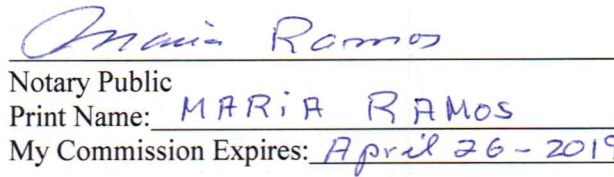 Maria Ramos
Notary Public
Print Name: MARiA RAMOS
My Commission Expires: April 26-2019